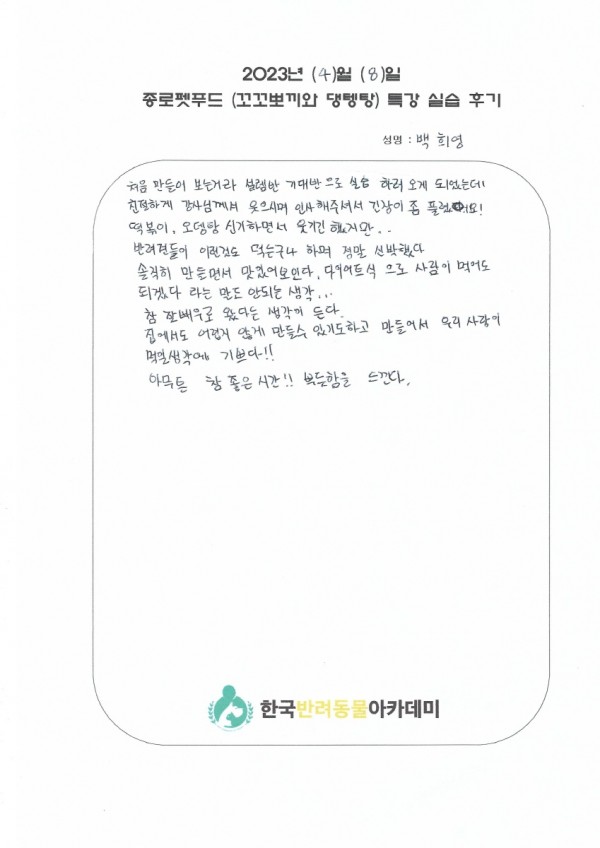 2023년 (4)월 (8)일
종로펫푸드 (꼬꼬뽀끼와 댕텡탕) 특강 실습 후기
성명 : 백희영
처음 만들어 보는거라 설렘반 기대반으로 실습 하러 오게 되었는데
친절하게 강사님께서 웃으시며 인사해주셔서 긴장이 좀 풀렸어요!
떡볶이, 오뎅탕 신기하면서 웃기긴 했지만..
반려견들이 이런것도 먹는구나 하며 정말 신박했다
솔직히 만들면서 맛있어보인다, 다이어트식 으로 사람이 먹어도
되겠다 라는 말도 안되는 생각...
참 잘배우러 왔다는 생각이 든다.
집에서도 어렵지 않게 만들수 있기도하고 만들어서 우리 사랑이
먹일생각에 기쁘다!!
아무튼 참 좋은 시간!! 뿌듯함을 느낀다.
한국반려동물아카데미